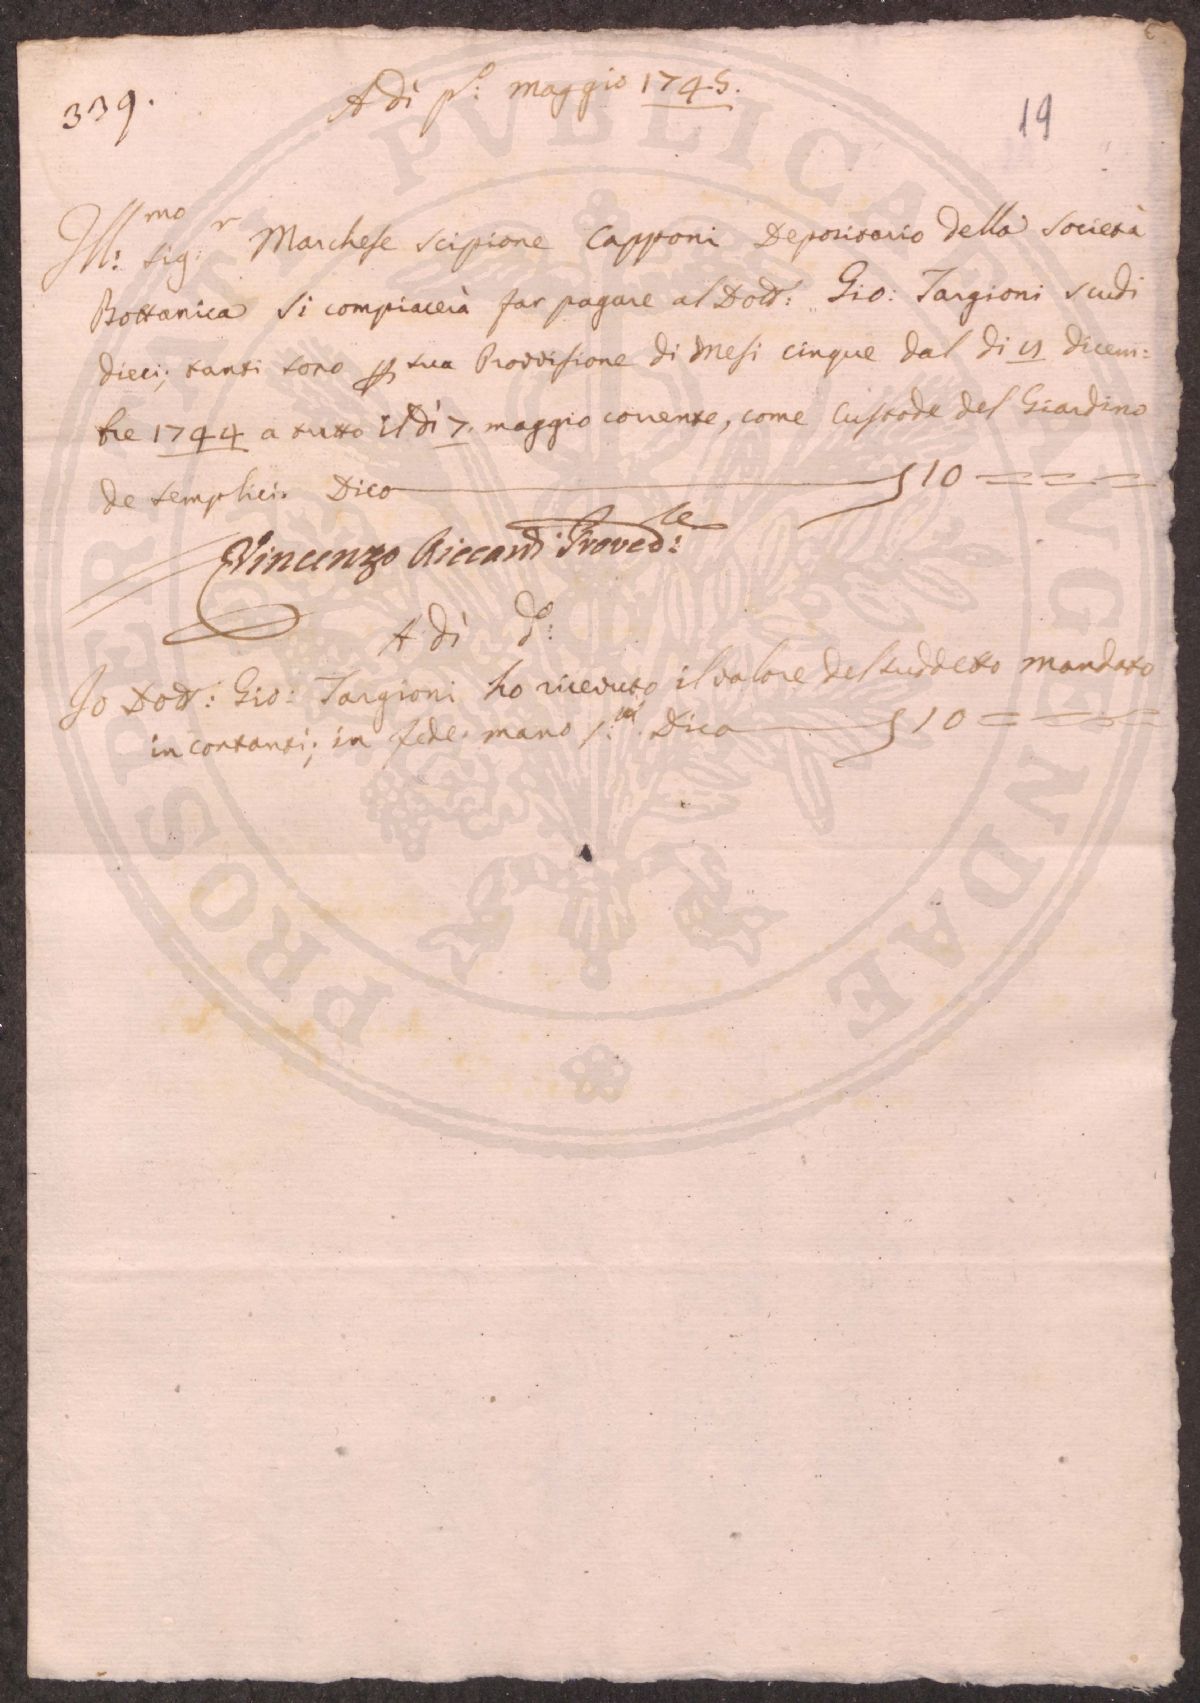 339.
A dì p.º: maggio 1745.
19
Ill:mo Sig:r Marchese Scipione Capponi Depositario della Società
Bottanica si compiacerà far pagare al Dott: Gio: Targioni scudi
dieci; tanti sono p sua Provvisione di Mesi cinque dal di dicem:
bre 1744 a tutto il dì 7. maggio corrente, come Custode del Giardino
de semplici. Dico 10
Vincenzo Riccardi Proved:re
A dì d.º:
Io Dott: Gio: Targioni ho ricevuto il valore del suddetto mandato
in contanti; in fede mano Dico 10
PROSPERITATI PVBLICAE AVGENDAE